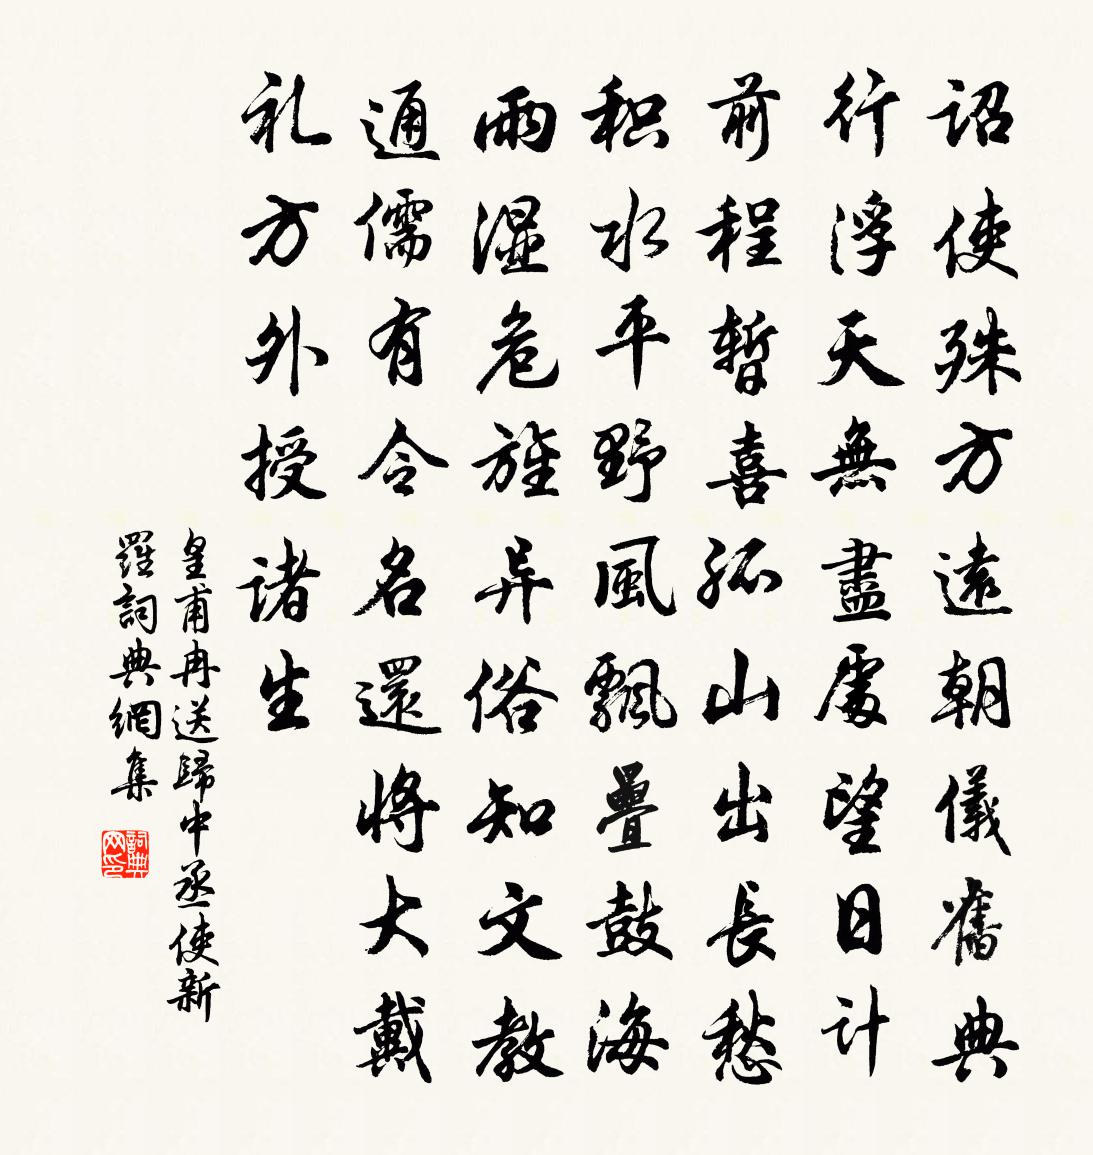 詔使殊方遠朝儀舊典
行浮天無盡處望日計
前程暫喜孤山出長愁
积水平野風飄疊鼓海
雨湿危旌异俗知文教
通儒有令名還將大戴
礼方外授諸生
皇甫冉送歸中丞使新
羅詞典網集
詞典网印